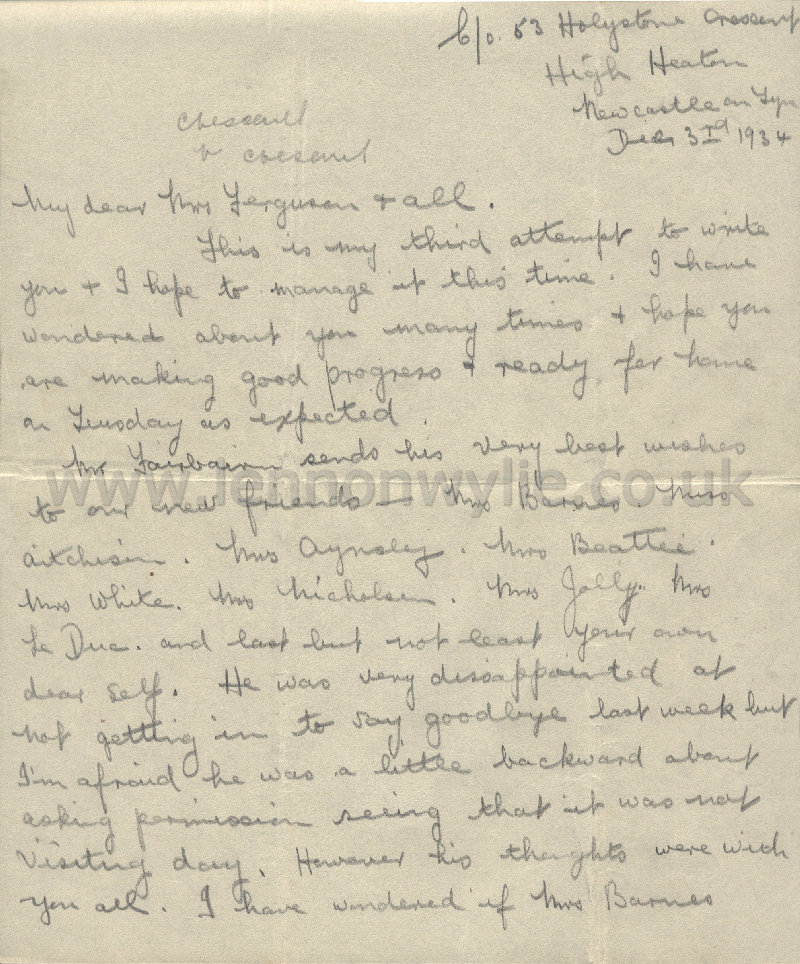 C/o. 53 Holystone Crescent
High Heaton
Newcastle on Tyn
Dec 3rd 1934
crescent
crescent
My dear Mrs Ferguson + all.
This is my third attempt to write
you + I hope to manage it this time. I have
wondered about you many times + hope you
are making good progress + ready for home
on Tuesday as expected.
Mr Fairbairn sends his very best wishes
www.lennonwylie.co.uk
to our new friends — Mrs Barnes. Miss
Aitchison. Mrs Aynsley. Mrs Beattie.
Mrs White. Mrs Nicholson. Mrs Jolly. Mrs
Le Duc. and last but not least your own
dear self. He was very dissappointed at
not getting in to say goodbye last week but
I'm afraid he was a little backward about
asking permission seeing that it was not
visiting day. However his thoughts were with
you all. I have wondered if Mrs Barnes